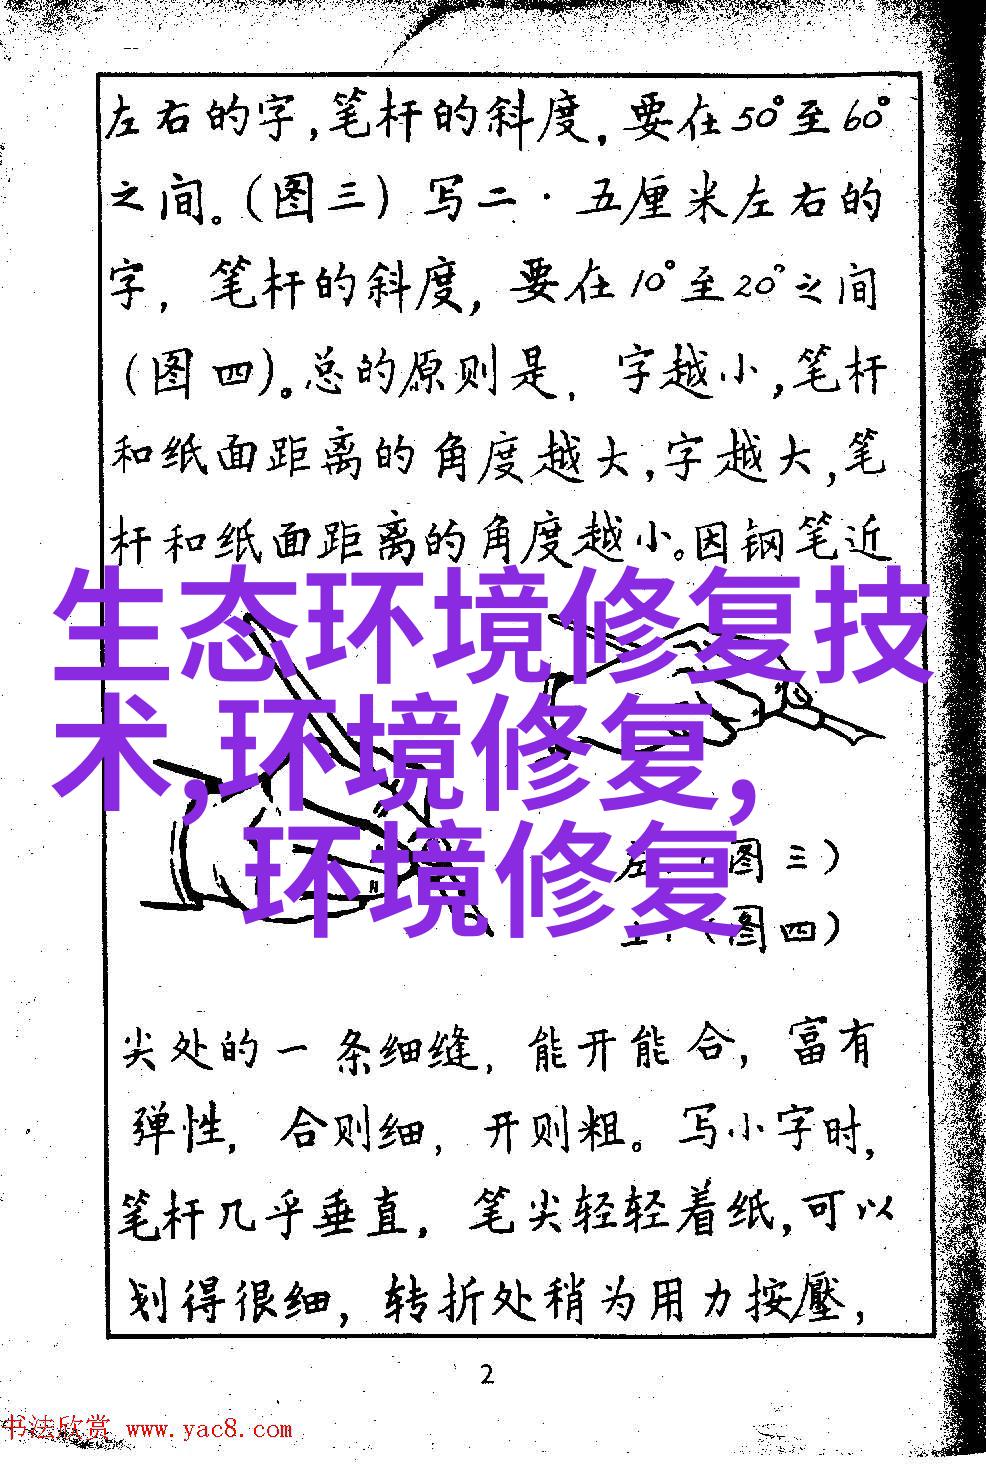 左右的字,笔杆的斜度,要在50°至60°
之间。(图三)写二·五厘米左右的
字,笔杆的斜度,要在10°至20°之间
(图四)。总的原则是,字越小,笔杆
和纸面距离的角度越大,字越大,笔
杆和纸面距离的角度越小。因钢笔近
生态环境修复技
术,环境修复,
环境修复
图三)
(图四)
尖处的一条细缝,能开能合,富有
弹性,合则细,开则粗。写小字时,
笔杆几乎垂直,笔尖轻轻着纸,可以
划得很细,转折处稍为用力按壓,
2
书法欣赏 www.yac8.com